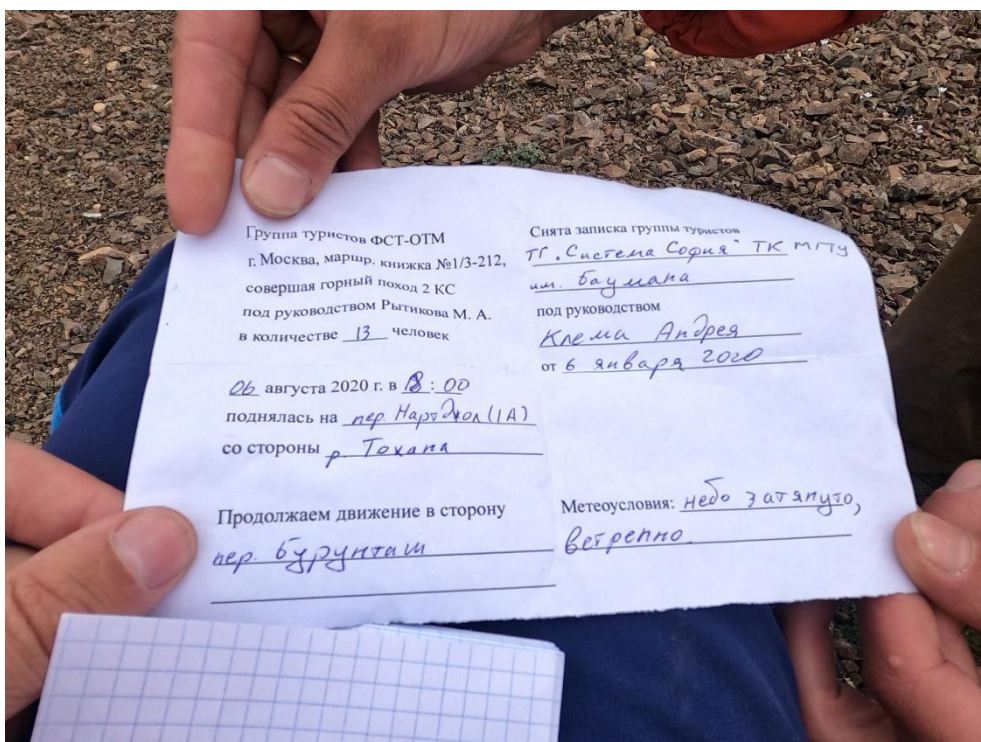 Группа туристов ФСТ-ОТМ
г. Москва, маршр. книжка №1/3-212,
совершая горный поход 2 КС
под руководством Рытикова М. А.
в количестве 13 человек
06 августа 2020 г. в 18:00
поднялась на пер. Нартджол (1А)
со стороны р. Тохана
Продолжаем движение в сторону
пер. Бурунташ
Снята записка группы туристов
ТГ "Система София" ТК МГТУ
им. Баумана
под руководством
Клема Андрея
от 6 января 2020
Метеоусловия: небо затянуто,
ветренно.